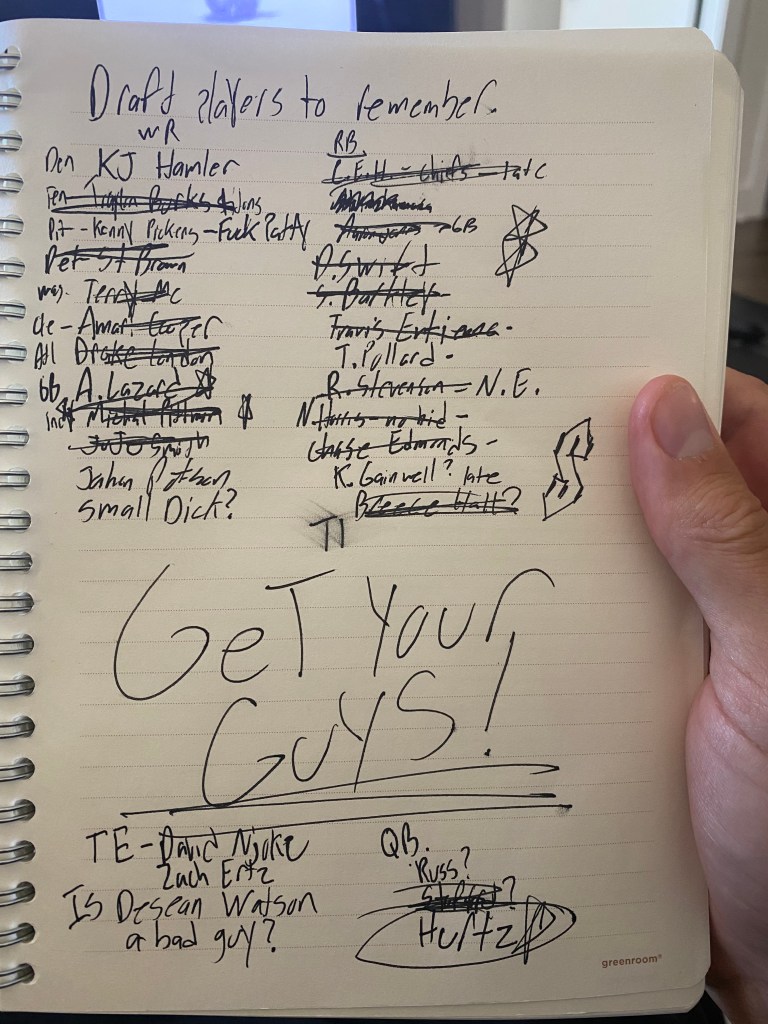 Draft players to remember.
WR
Den KJ Hamler
Ten Traylon Burks
Pit - Kenny Pickens - Fuck Patty
Det St Brown
Terry Mc
Cle - Amari Cooper
Atl Drake London
GB A. Lazard
Ind Michal Pittman
JuJu Smith
Jahan Dotson
Small Dick?
RB.
C.E.H. - Chiefs - late
Aaron Jones - GB
D. Swift
S. Barkley
Travis Entienne -
T. Pollard -
R. Stevenson - N.E.
N. Harris - no bid -
Chase Edmonds -
K. Gainwell? late
Breece Hall?
TI
GeT Your
GuYS!
TE - David Njoke
Zach Ertz
Is Desean Watson
a bad guy?
QB.
Russ?
Hurtz
greenroom®